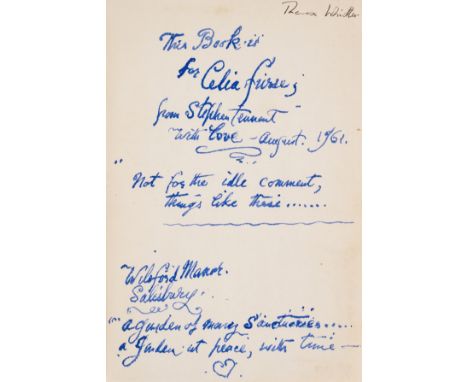 This Book is
for Celia Furse;
from Stephen Tennant
With Love - August. 1961.
"Not for the idle comment,
things like these.......
Wilsford Manor.
Salisbury.
"a garden of many Sanctuaries.....
a Garden at peace, with time —